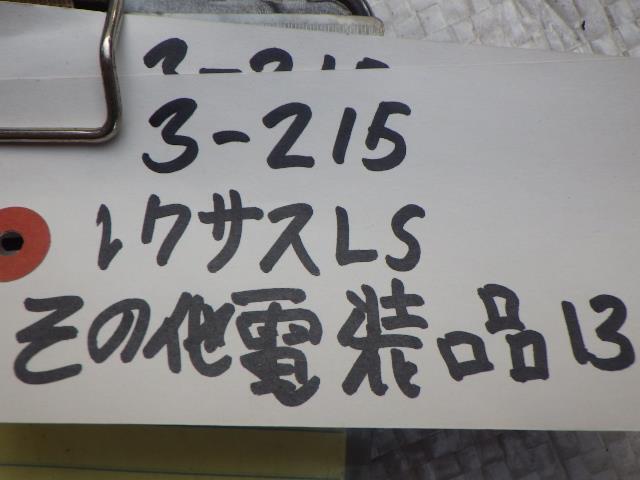 3-215
3-215
レクサスLS
その他電装品13